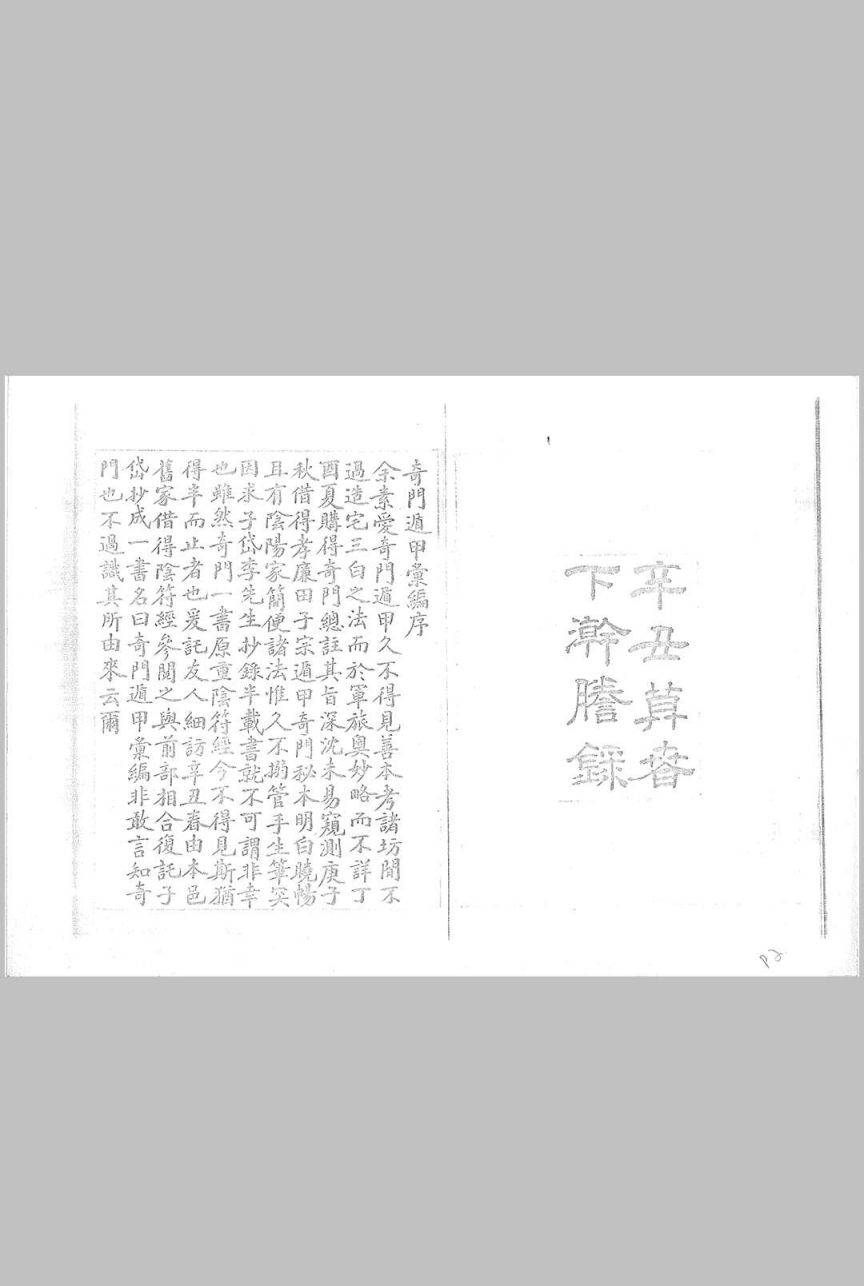 辛丑莫春
下澣謄錄
奇門遁甲彙編序
余素愛奇門遁甲久不得見善本考諸坊間不
過造宅三白之法而於軍旅奧妙略而不詳丁
酉夏購得奇門總註其旨深沈未易窺測庚子
秋借得孝廉田子宗遁甲奇門秘本明白曉暢
且有陰陽家簡便諸法惟久不搦管手生筆
因求子岱李先生抄錄半載書就不可謂非幸
也雖然奇門一書原重陰符經今不得見斯猶
得半而止者也爰託友人細訪辛丑春由本邑
舊家借得陰符經參閱之與前部相合復託子
岱抄成一書名曰奇門遁甲彙編非敢言知奇
門也不過識其所由來云爾
P2